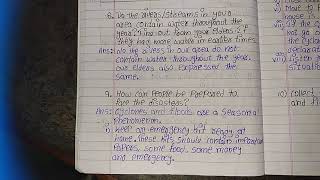 8. Do the rivers/streams in your
area contain water throughout the
year? Find out from your elders if
they had more water in earlier times
Ans: No the rivers in our area do not
contain water throughout the year.
our elders also expressed the
same.
9. How can people be prepared to
face the disasters?
Ans: Cyclones and floods are a seasonal
Phenomenon.
i) keep an emergency kit ready at
home. These kits should contain important
papers, some food, some money
and emergency.
i)
2) Move to
house is
vi) not go
electric
vii) listen
situation
10)
collect
and fi